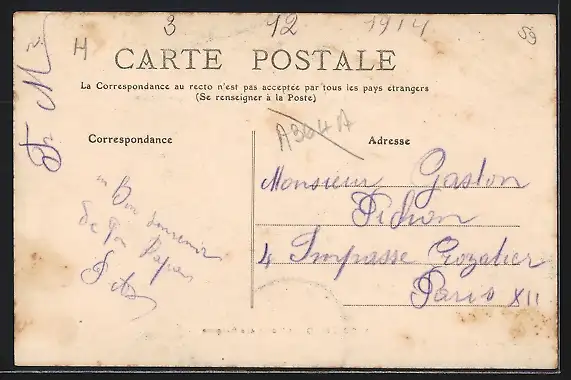 3 12 1914
H
59
F. M.
CARTE POSTALE
La Correspondance au recto n'est pas acceptée par tous les pays étrangers
(Se renseigner à la Poste)
A364A
Correspondance
Adresse
un Bon Souvenir
de ton Papa
Monsieur Gaston
Pichon
4 Impasse Crozatier
Paris XII